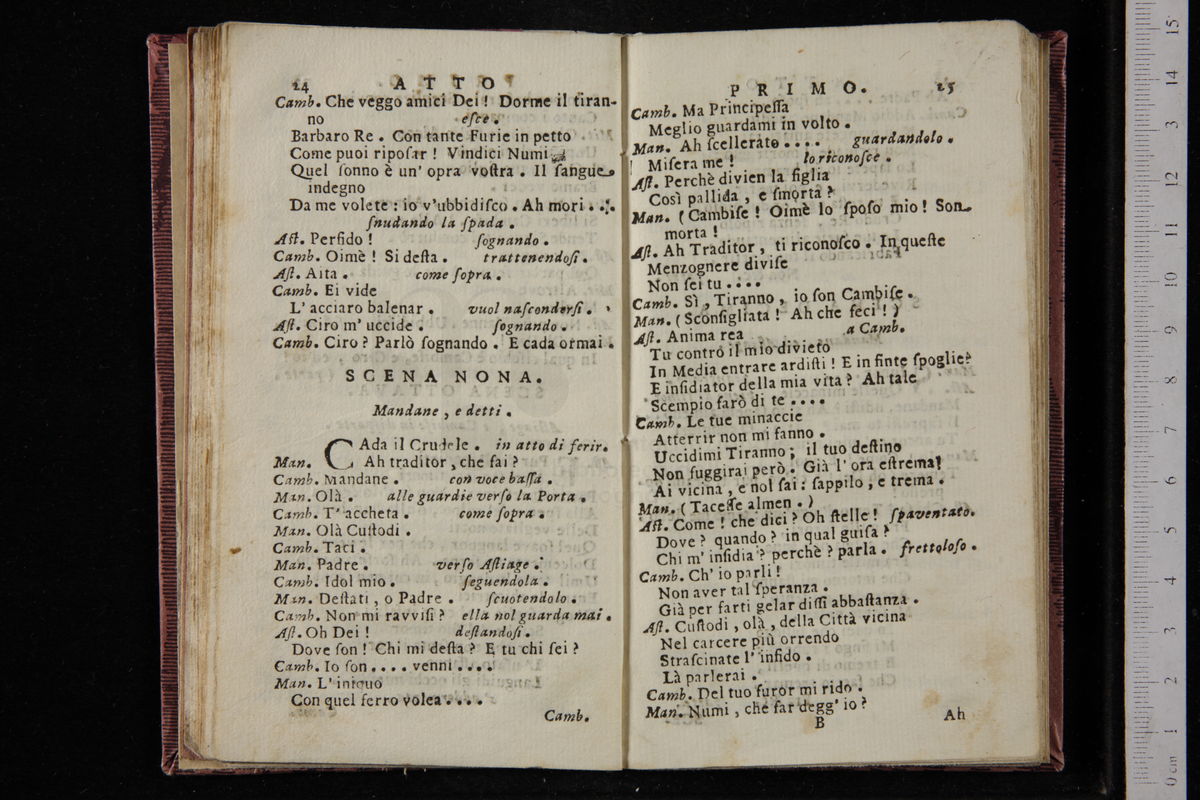 24 ATTO
Camb. Che veggo amici Dei ! Dorme il tiran-
no eſce .
Barbaro Re . Con tante Furie in petto
Come puoi ripoſar ! Vindici Numi
Quel ſonno è un' opra voſtra . Il ſangue
indegno
Da me volete : io v'ubbidiſco . Ah mori . . .
ſnudando la ſpada .
Aſt. Perfido ! ſognando .
Camb. Oimè ! Si deſta . trattenendoſi .
Aſt. Aita . come ſopra .
Camb. Ei vide
L' acciaro balenar . vuol naſconderſi .
Aſt. Ciro m' uccide . ſognando .
Camb. Ciro ? Parlò ſognando . E cada ormai .
SCENA NONA.
Mandane , e detti .
CAda il Crudele . in atto di ferir.
Man. Ah traditor , che fai ?
Camb. Mandane . con voce baſſa .
Man. Olà . alle guardie verſo la Porta .
Camb. T' accheta . come ſopra .
Man. Olà Cuſtodi .
Camb. Taci .
Man. Padre . verſo Aſtiage .
Camb. Idol mio . ſeguendola .
Man. Deſtati , o Padre . ſcuotendolo .
Camb. Non mi ravviſi ? ella nol guarda mai .
Aſt. Oh Dei ! deſtandoſi .
Dove ſon ! Chi mi deſta ? E tu chi ſei ?
Camb. Io ſon . . . . venni . . . .
Man. L' iniquo
Con quel ferro volea . . . .
Camb.
PRIMO. 25
Camb. Ma Principeſſa
Meglio guardami in volto .
Man. Ah ſcellerato . . . . guardandolo .
Miſera me ! lo riconoſce .
Aſt. Perchè divien la figlia
Così pallida , e ſmorta ?
Man. ( Cambiſe ! Oimè lo ſpoſo mio ! Son
morta !
Aſt. Ah Traditor , ti riconoſco . In queſte
Menzognere diviſe
Non ſei tu . . . .
Camb. Sì , Tiranno , io ſon Cambiſe .
Man. ( Sconſigliata ! Ah che feci ! )
Aſt. Anima rea a Camb.
Tu contro il mio divieto
In Media entrare ardiſti ! E in finte ſpoglie?
E inſidiator della mia vita ? Ah tale
Scempio farò di te . . . .
Camb. Le tue minaccie
Atterrir non mi fanno .
Uccidimi Tiranno ; il tuo deſtino
Non fuggirai però . Già l' ora eſtrema!
Ai vicina , e nol ſai : ſappilo , e trema .
Man. ( Taceſſe almen . )
Aſt. Come ! che dici ? Oh ſtelle ! ſpaventato.
Dove ? quando ? in qual guiſa ?
Chi m' inſidia ? perchè ? parla . frettoloſo .
Camb. Ch' io parli !
Non aver tal ſperanza .
Già per farti gelar diſſi abbaſtanza .
Aſt. Cuſtodi , olà , della Città vicina
Nel carcere più orrendo
Straſcinate l' infido .
Là parlerai .
Camb. Del tuo furor mi rido .
Man. Numi , che far degg' io ?
B Ah